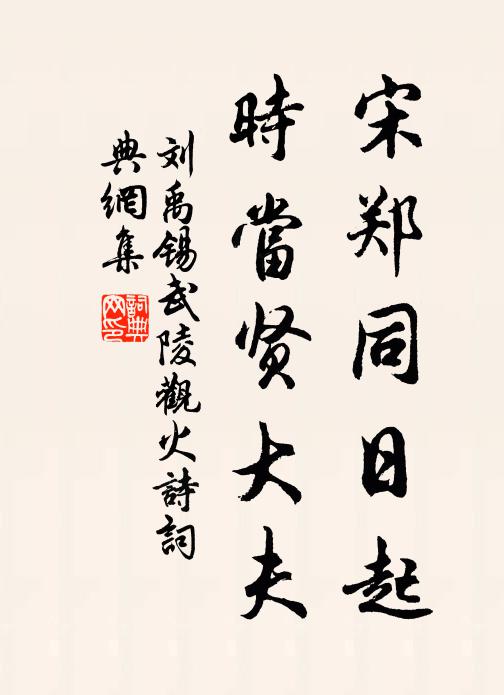 宋郑同日起
時當贤大夫
刘禹锡武陵觀火詩詞
典網集
詞典网印